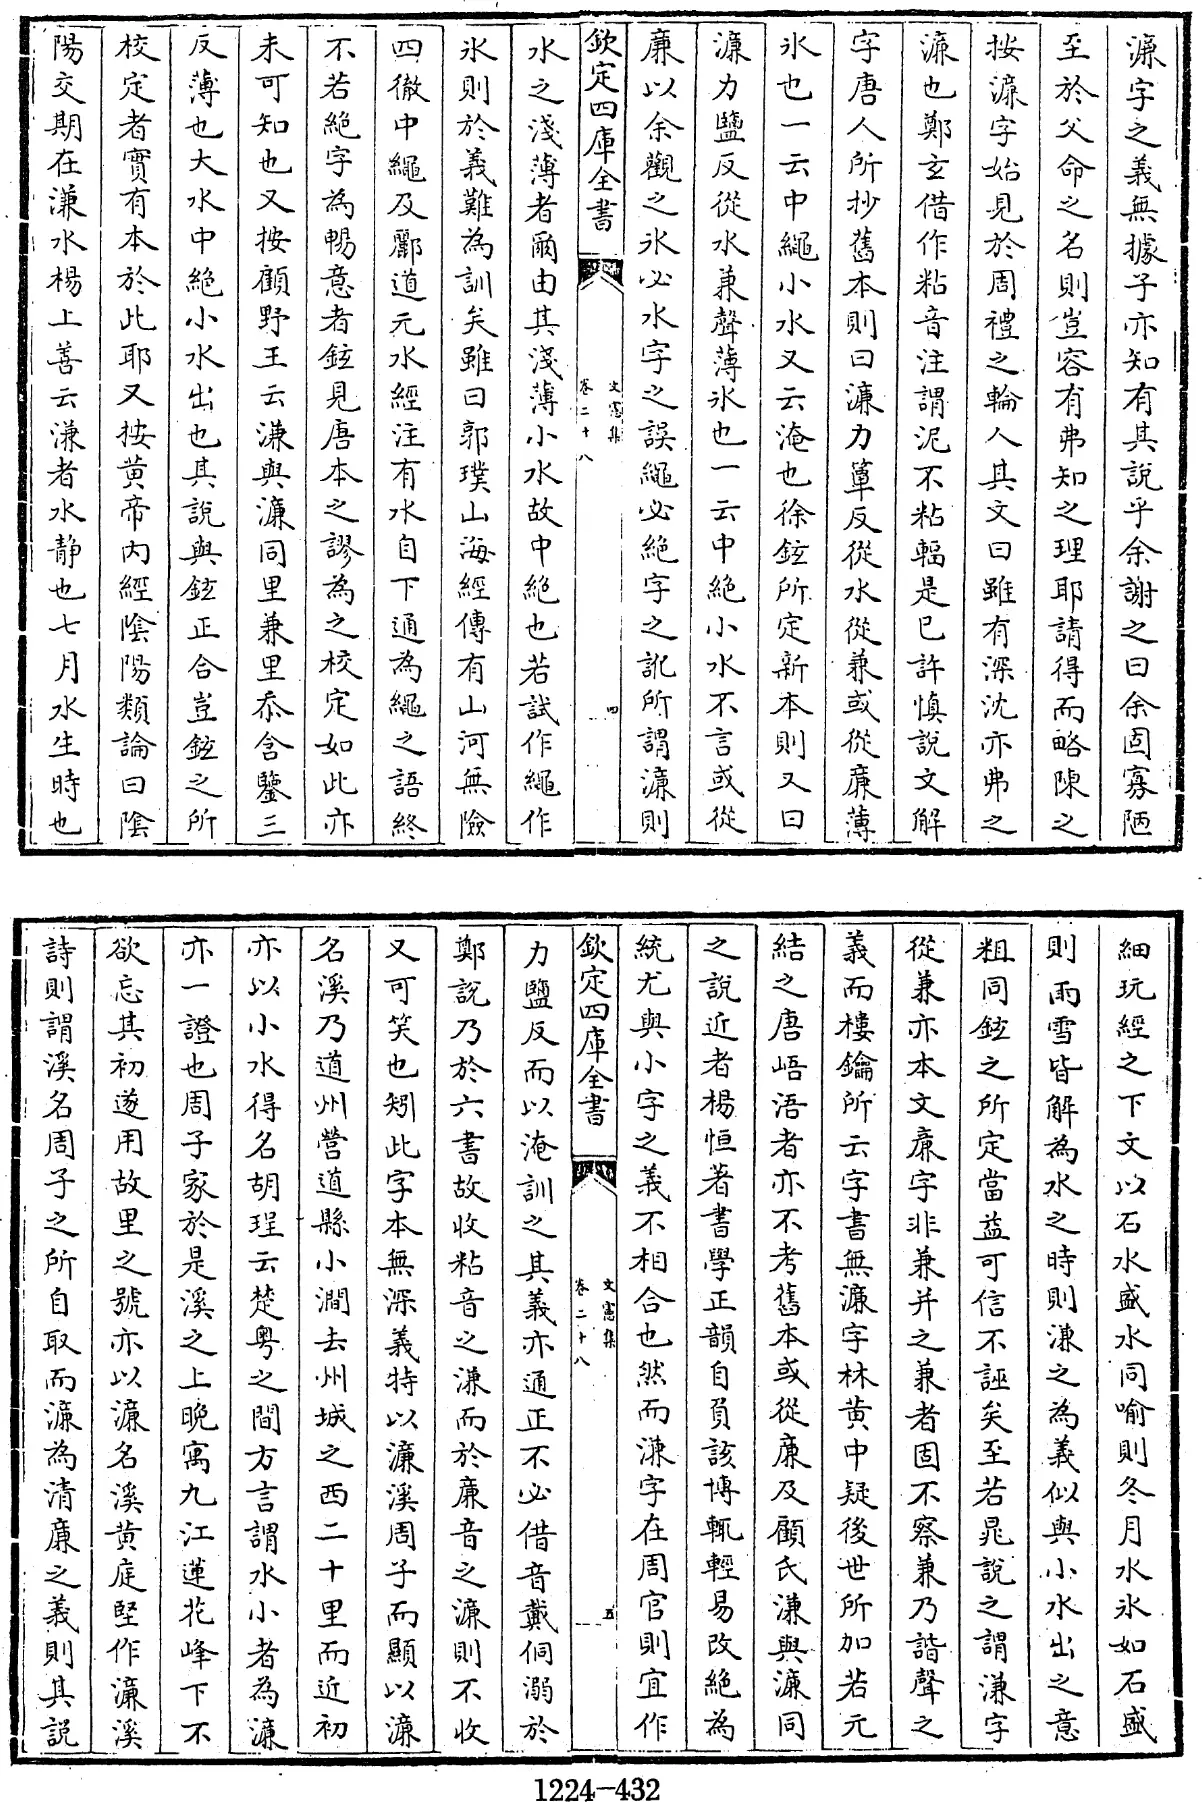 濓字之義無據子亦知有其說乎余謝之曰余固寡陋
至於父命之名則豈容有弗知之理耶請得而略陳之
按濓字始見於周禮之輪人其文曰雖有深沈亦弗之
濓也鄭玄借作粘音注謂泥不粘輻是已許慎說文解
字唐人所抄舊本則曰濓力簟反從水從兼或從廉薄
氷也一云中繩小水又云淹也徐鉉所定新本則又曰
濓力鹽反從水兼聲薄氷也一云中絶小水不言或從
廉以余觀之氷必水字之誤繩必絶字之訛所謂濓則
欽定四庫全書
文憲集
卷二十八
四
水之淺薄者爾由其淺薄小水故中絶也若試作繩作
氷則於義難為訓矣雖曰郭璞山海經傳有山河無險
四徹中繩及酈道元水經注有水自下通為繩之語終
不若絶字為暢意者鉉見唐本之謬為之校定如此亦
未可知也又按顧野王云溓與濂同里兼里忝含鑒三
反薄也大水中絶小水出也其說與鉉正合豈鉉之所
校定者實有本於此耶又按黄帝內經陰陽類論曰陰
陽交期在溓水楊上善云溓者水静也七月水生時也
細玩經之下文以石水盛水同喻則冬月水氷如石盛
則雨雪皆解為水之時則溓之為義似與小水出之意
粗同鉉之所定當益可信不誣矣至若晁說之謂溓字
從兼亦本文廉字非兼并之兼者固不察兼乃諧聲之
義而樓鑰所云字書無濂字林黄中疑後世所加若元
結之唐峿浯者亦不考舊本或從廉及顧氏溓與濂同
之說近者楊恒著書學正韻自負該博輒輕易改絶為
統尤與小字之義不相合也然而溓字在周官則宜作
欽定四庫全書
文憲集
卷二十八
五
力鹽反而以淹訓之其義亦通正不必借音戴侗溺於
鄭說乃於六書故收粘音之溓而於廉音之濂則不收
又可笑也矧此字本無深義特以濂溪周子而顯以濂
名溪乃道州營道縣小澗去州城之西二十里而近初
亦以小水得名胡珵云楚粤之間方言謂水小者為濂
亦一證也周子家於是溪之上晚寓九江蓮花峰下不
欲忘其初遂用故里之號亦以濂名溪黄庭堅作濂溪
詩則謂溪名周子之所自取而濂為清廉之義則其說
1224-432